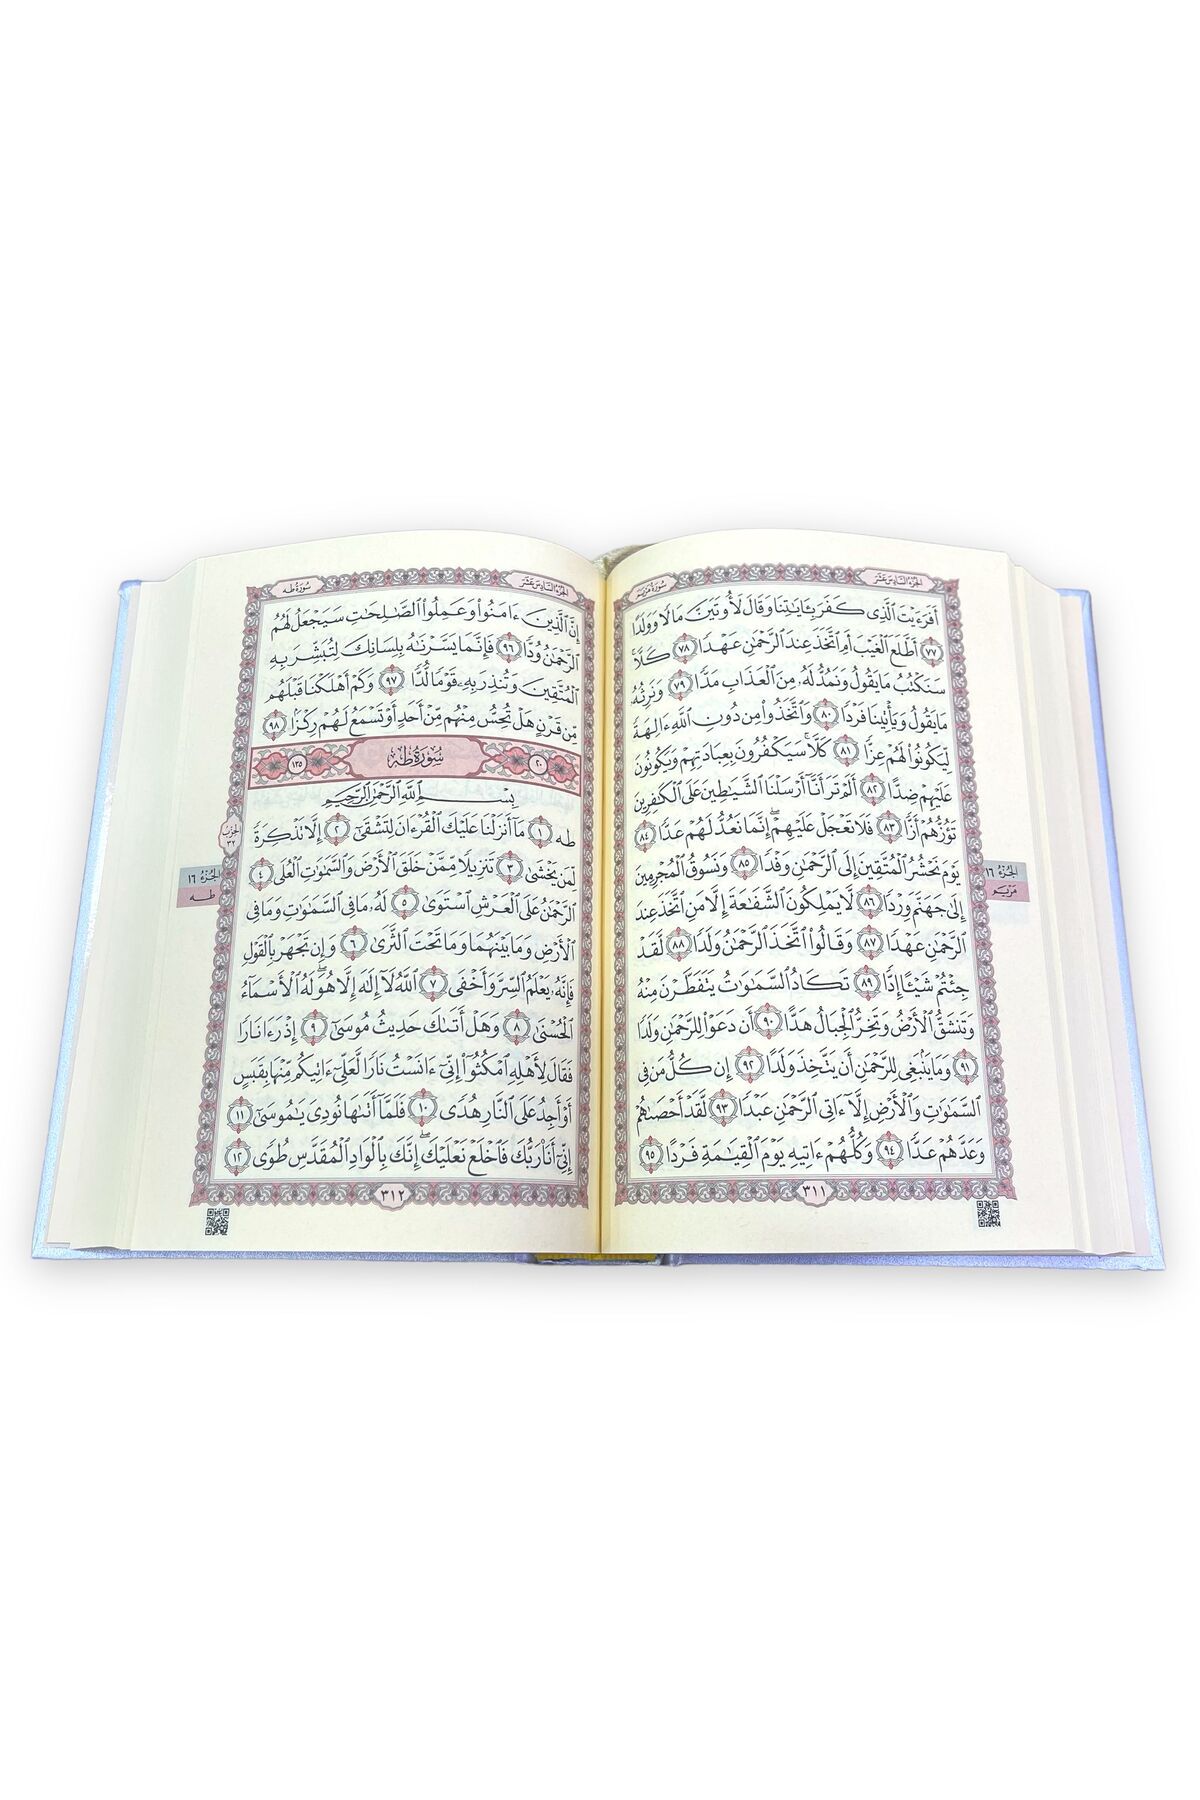 الجزء السادس عشر
سورة مريم
أَفَرَءَيْتَ ٱلَّذِى كَفَرَ بِـَٔايَـٰتِنَا وَقَالَ لَأُوتَيَنَّ مَالًا وَوَلَدًا
﴿٧٧﴾ أَطَّلَعَ ٱلْغَيْبَ أَمِ ٱتَّخَذَ عِندَ ٱلرَّحْمَـٰنِ عَهْدًا ﴿٧٨﴾ كَلَّا
سَنَكْتُبُ مَا يَقُولُ وَنَمُدُّ لَهُۥ مِنَ ٱلْعَذَابِ مَدًّا ﴿٧٩﴾ وَنَرِثُهُۥ
مَا يَقُولُ وَيَأْتِينَا فَرْدًا ﴿٨٠﴾ وَٱتَّخَذُوا۟ مِن دُونِ ٱللَّهِ ءَالِهَةً
لِّيَكُونُوا۟ لَهُمْ عِزًّا ﴿٨١﴾ كَلَّا سَيَكْفُرُونَ بِعِبَادَتِهِمْ وَيَكُونُونَ
عَلَيْهِمْ ضِدًّا ﴿٨٢﴾ أَلَمْ تَرَ أَنَّآ أَرْسَلْنَا ٱلشَّيَـٰطِينَ عَلَى ٱلْكَـٰفِرِينَ
تَؤُزُّهُمْ أَزًّا ﴿٨٣﴾ فَلَا تَعْجَلْ عَلَيْهِمْ إِنَّمَا نَعُدُّ لَهُمْ عَدًّا ﴿٨٤﴾
يَوْمَ نَحْشُرُ ٱلْمُتَّقِينَ إِلَى ٱلرَّحْمَـٰنِ وَفْدًا ﴿٨٥﴾ وَنَسُوقُ ٱلْمُجْرِمِينَ
إِلَىٰ جَهَنَّمَ وِرْدًا ﴿٨٦﴾ لَّا يَمْلِكُونَ ٱلشَّفَـٰعَةَ إِلَّا مَنِ ٱتَّخَذَ عِندَ
ٱلرَّحْمَـٰنِ عَهْدًا ﴿٨٧﴾ وَقَالُوا۟ ٱتَّخَذَ ٱلرَّحْمَـٰنُ وَلَدًا ﴿٨٨﴾ لَّقَدْ
جِئْتُمْ شَيْـًٔا إِدًّا ﴿٨٩﴾ تَكَادُ ٱلسَّمَـٰوَٰتُ يَتَفَطَّرْنَ مِنْهُ
وَتَنشَقُّ ٱلْأَرْضُ وَتَخِرُّ ٱلْجِبَالُ هَدًّا ﴿٩٠﴾ أَن دَعَوْا۟ لِلرَّحْمَـٰنِ وَلَدًا
﴿٩١﴾ وَمَا يَنۢبَغِى لِلرَّحْمَـٰنِ أَن يَتَّخِذَ وَلَدًا ﴿٩٢﴾ إِن كُلُّ مَن فِى
ٱلسَّمَـٰوَٰتِ وَٱلْأَرْضِ إِلَّآ ءَاتِى ٱلرَّحْمَـٰنِ عَبْدًا ﴿٩٣﴾ لَّقَدْ أَحْصَىٰهُمْ
وَعَدَّهُمْ عَدًّا ﴿٩٤﴾ وَكُلُّهُمْ ءَاتِيهِ يَوْمَ ٱلْقِيَـٰمَةِ فَرْدًا ﴿٩٥﴾
٣١١
الجزء ١٦
مريم
الجزء السادس عشر
سورة طه
إِنَّ ٱلَّذِينَ ءَامَنُوا۟ وَعَمِلُوا۟ ٱلصَّـٰلِحَـٰتِ سَيَجْعَلُ لَهُمُ
ٱلرَّحْمَـٰنُ وُدًّا ﴿٩٦﴾ فَإِنَّمَا يَسَّرْنَـٰهُ بِلِسَانِكَ لِتُبَشِّرَ بِهِ
ٱلْمُتَّقِينَ وَتُنذِرَ بِهِۦ قَوْمًا لُّدًّا ﴿٩٧﴾ وَكَمْ أَهْلَكْنَا قَبْلَهُم
مِّن قَرْنٍ هَلْ تُحِسُّ مِنْهُم مِّنْ أَحَدٍ أَوْ تَسْمَعُ لَهُمْ رِكْزًۢا ﴿٩٨﴾
٢٠ سُورَةُ طه ١٣٥
بِسْمِ ٱللَّهِ ٱلرَّحْمَـٰنِ ٱلرَّحِيمِ
طه ﴿١﴾ مَآ أَنزَلْنَا عَلَيْكَ ٱلْقُرْءَانَ لِتَشْقَىٰٓ ﴿٢﴾ إِلَّا تَذْكِرَةً
لِّمَن يَخْشَىٰ ﴿٣﴾ تَنزِيلًا مِّمَّنْ خَلَقَ ٱلْأَرْضَ وَٱلسَّمَـٰوَٰتِ ٱلْعُلَى ﴿٤﴾
ٱلرَّحْمَـٰنُ عَلَى ٱلْعَرْشِ ٱسْتَوَىٰ ﴿٥﴾ لَهُۥ مَا فِى ٱلسَّمَـٰوَٰتِ وَمَا فِى
ٱلْأَرْضِ وَمَا بَيْنَهُمَا وَمَا تَحْتَ ٱلثَّرَىٰ ﴿٦﴾ وَإِن تَجْهَرْ بِٱلْقَوْلِ
فَإِنَّهُۥ يَعْلَمُ ٱلسِّرَّ وَأَخْفَى ﴿٧﴾ ٱللَّهُ لَآ إِلَـٰهَ إِلَّا هُوَ لَهُ ٱلْأَسْمَآءُ
ٱلْحُسْنَىٰ ﴿٨﴾ وَهَلْ أَتَىٰكَ حَدِيثُ مُوسَىٰٓ ﴿٩﴾ إِذْ رَءَا نَارًا
فَقَالَ لِأَهْلِهِ ٱمْكُثُوٓا۟ إِنِّىٓ ءَانَسْتُ نَارًا لَّعَلِّىٓ ءَاتِيكُم مِّنْهَا بِقَبَسٍ
أَوْ أَجِدُ عَلَى ٱلنَّارِ هُدًى ﴿١٠﴾ فَلَمَّآ أَتَىٰهَا نُودِىَ يَـٰمُوسَىٰٓ ﴿١١﴾
إِنِّىٓ أَنَا۠ رَبُّكَ فَٱخْلَعْ نَعْلَيْكَ إِنَّكَ بِٱلْوَادِ ٱلْمُقَدَّسِ طُوًى ﴿١٢﴾
٣١٢
الحزب
٣٢
الجزء ١٦
طه